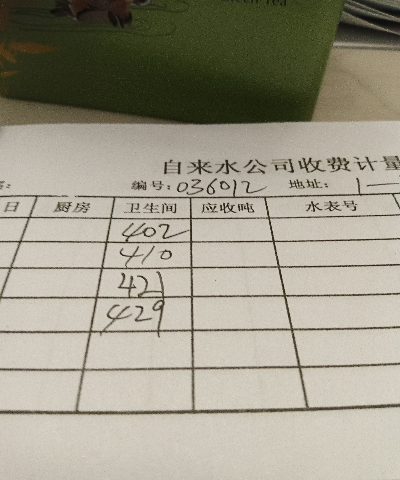 Tea
自来水公司收费计量
编号:036012 地址: 1—
日 厨房 卫生间 应收吨 水表号
402
410
421
429